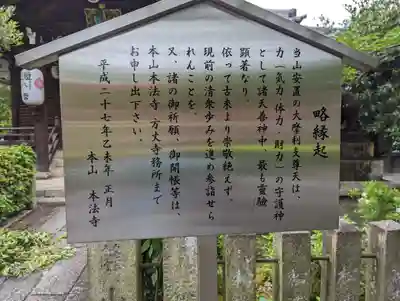 略縁起
当山安置の大摩利支尊天は、
力（気力・体力・財力）の守護神
として諸天善神中、最も霊験
顕著なり。
依って古来より崇敬絶えず。
現前の清衆歩みを進め参詣せら
れんことを。
又、諸の御祈願、御開帳等は、
本山本法寺・方丈寺務所まで
お申し出下さい。
平成二十七年乙未年 正月
本山 本法寺